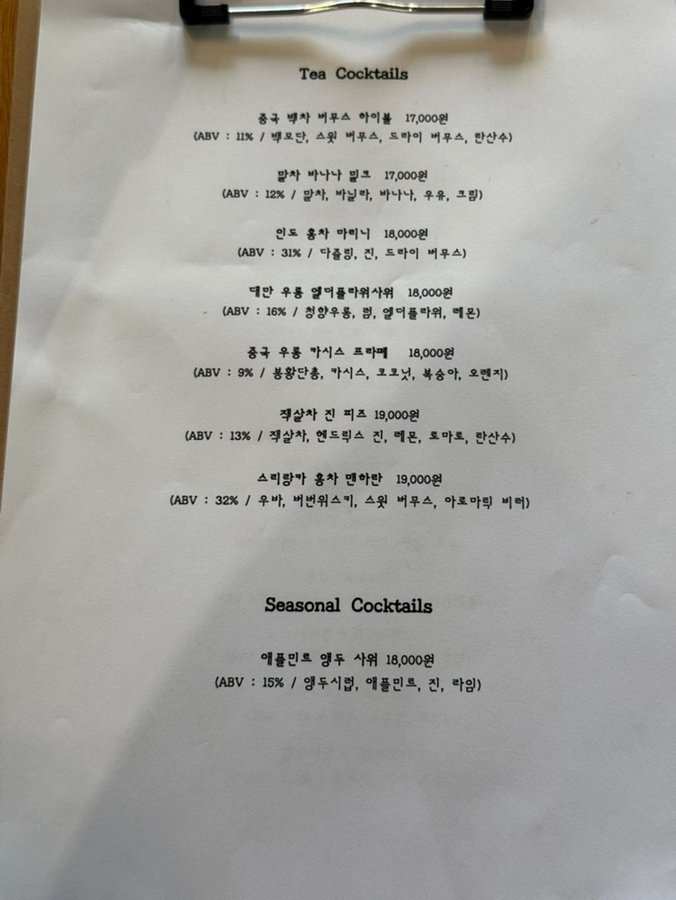 Tea Cocktails
중국 백차 버무스 하이볼 17,000원
(ABV : 11% / 백모단, 스윗 버무스, 드라이 버무스, 탄산수)
말차 바나나 밀크 17,000원
(ABV : 12% / 말차, 바닐라, 바나나, 우유, 크림)
인도 홍차 마티니 18,000원
(ABV : 31% / 다즐링, 진, 드라이 버무스)
대만 우롱 엘더플라워사워 18,000원
(ABV : 16% / 청향우롱, 럼, 엘더플라워, 레몬)
중국 우롱 카시스 프라페 18,000원
(ABV : 9% / 봉황단총, 카시스, 코코넛, 복숭아, 오렌지)
잭살차 진 피즈 19,000원
(ABV : 13% / 잭살차, 헨드릭스 진, 레몬, 토마토, 탄산수)
스리랑카 홍차 맨하탄 19,000원
(ABV : 32% / 우바, 버번위스키, 스윗 버무스, 아로마틱 비터)
Seasonal Cocktails
애플민트 앵두 사워 18,000원
(ABV : 15% / 앵두시럽, 애플민트, 진, 라임)